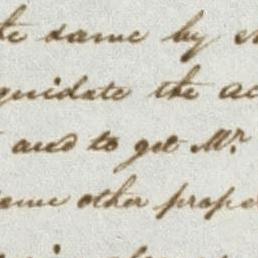 te same by
quidate the ac
and to get Mr.
some other prope